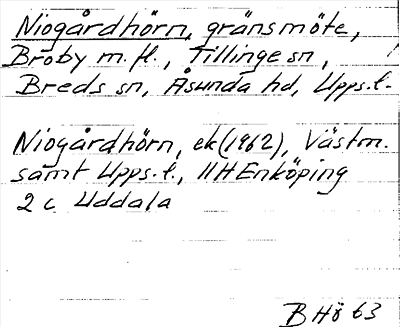 Niogårdhörn, gränsmöte,
Broby m.fl., Tillinge sn,
Breds sn, Åsunda hd, Upps.l.
Niogårdhörn, ek (1962), Västm.
samt Upps.l., 11H Enköping
2 c Uddala
B Hö 63